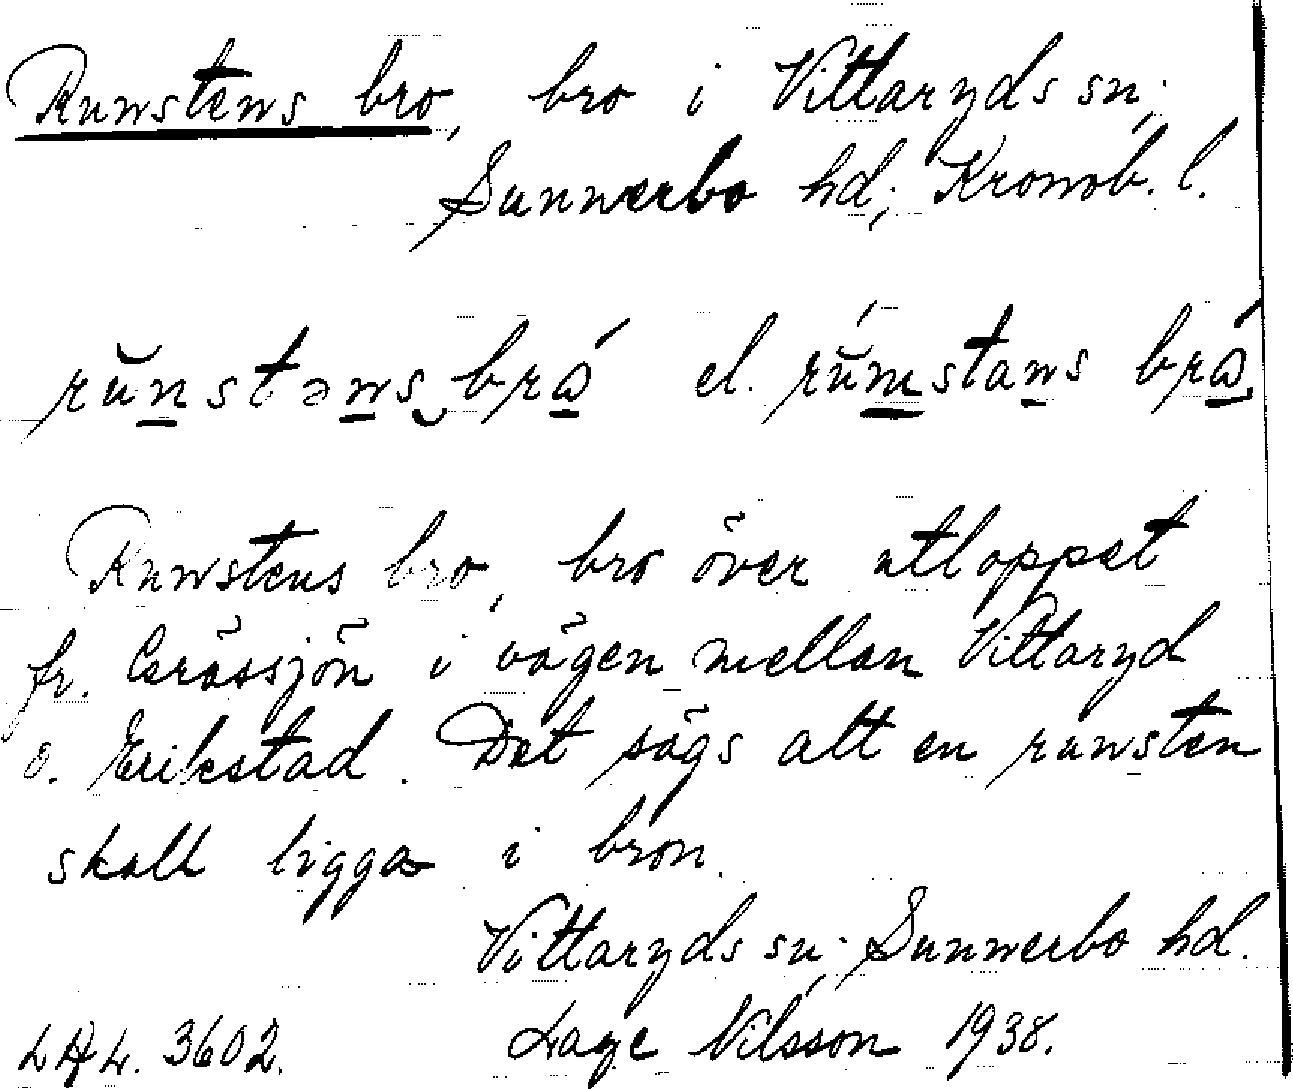 Runstens bro, bro i Vittaryds sn;
Sunnerbo hd; Kronob. l.
rŭnstəns brɷ́ el. rŭ́mstans brɷ́.
Runstens bro, bro över utloppet
fr. Gråssjön i vägen mellan Vittaryd
o. Erikstad. Det sägs att en runsten
skall ligga i bron.
Vittaryds sn; Sunnerbo hd.
LAL. 3602. Lage Nilsson 1938.